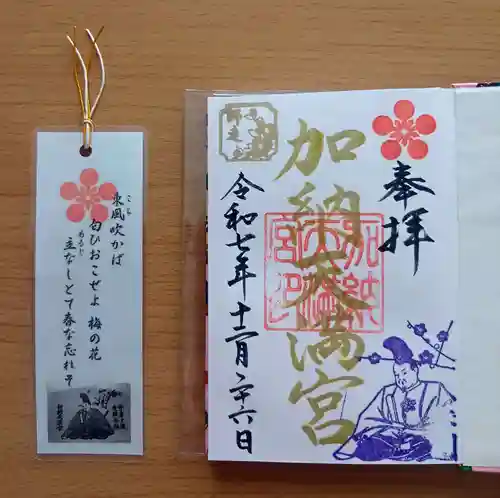 東風吹かば
こち
匂ひおこせよ 梅の花
主なしとて春な忘れそ
あるじ
奉拝
加納天満宮
令和七年十二月二十六日